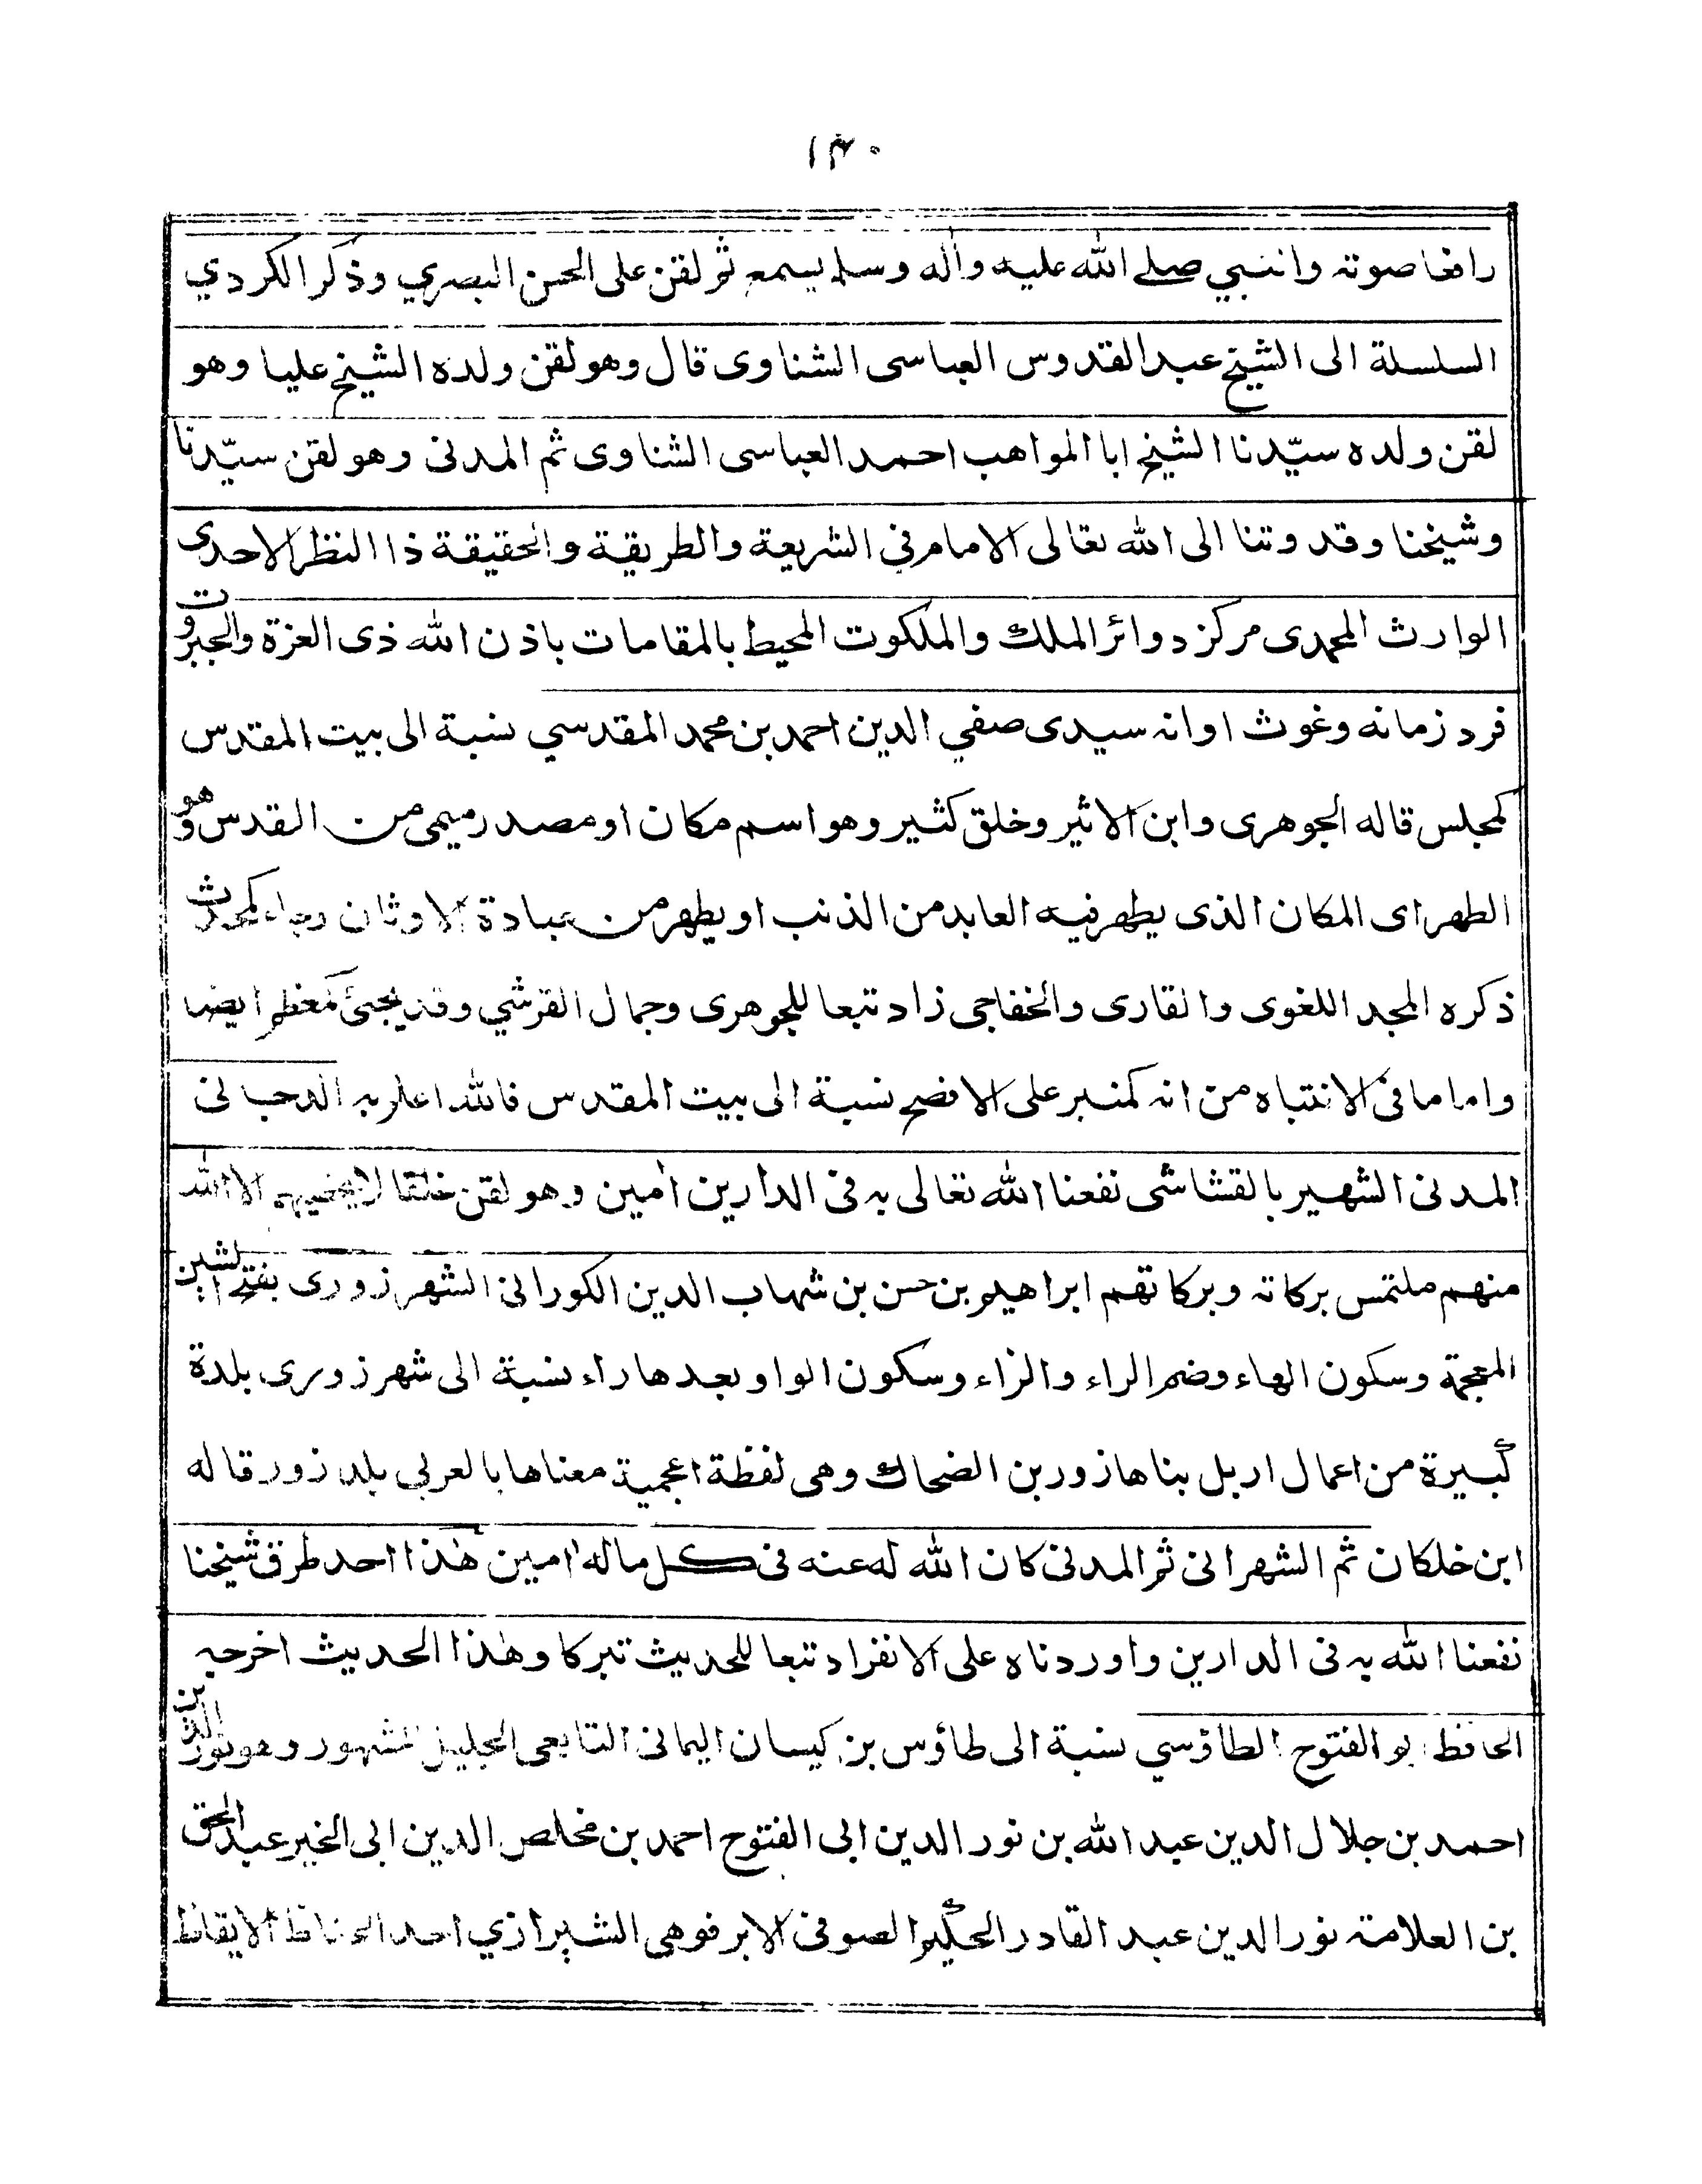 ١٣٠
رافعا صوته والنبي صلى الله عليه وآله وسلم يسمع ثم لقن على الحسن البصري وذكر الكردي
السلسلة الى الشيخ عبد القدوس العباسى الشناوى قال وهو لقن ولده الشيخ عليا وهو
لقن ولده سيّدنا الشيخ ابا المواهب احمد العباسى الشناوى ثم المدنى وهو لقن سيّدنا
وشيخنا وقدوتنا الى الله تعالى الامام في الشريعة والطريقة والحقيقة ذا النظر الاحدى
الوارث المحمدى مركز دوائر الملك والملكوت المحيط بالمقامات باذن الله ذى العزة والجبروت
فرد زمانه وغوث اوانه سيدى صفي الدين احمد بن محمد المقدسي نسبة الى بيت المقدس
كمجلس قاله الجوهرى وابن الاثير وخلق كثير وهو اسم مكان او مصدر ميمى من القدس وهو
الطهر اى المكان الذى يطهر فيه العابد من الذنب او يطهر من عبادة الاوثان وجاء كمحدث
ذكره المجد اللغوى والقارى والخفاجى زاد تبعا للجوهرى وجمال القرشي وقد يجئ كمعظم ايضا
واما ما فى الانتباه من انه كمنبر على الافصح نسبة الى بيت المقدس فالله اعلم به الدجانى
المدنى الشهير بالقشاشى نفعنا الله تعالى به فى الدارين آمين وهو لقن خلقا لا يحصيهم الا الله
منهم ملتمس بركاته وبركاتهم ابراهيم بن حسن بن شهاب الدين الكورانى الشهرزورى بفتح الشين
المعجمة وسكون الهاء وضم الراء والزاء وسكون الواو بعدها راء نسبة الى شهرزورى بلدة
كبيرة من اعمال اربل بناها زور بن الضحاك وهى لفظة اعجمية معناها بالعربى بلد زور قاله
ابن خلكان ثم الشهرانى ثم المدنى كان الله له عنه فى كل ماله امين هذا احد طرق شيخنا
نفعنا الله به فى الدارين واوردناه على الانفراد تبعا للحديث تبركا وهذا الحديث اخرجه
الحافظ ابو الفتوح الطاؤسي نسبة الى طاؤس بن كيسان اليمانى التابعى الجليل المشهور وهو نور الدين
احمد بن جلال الدين عبد الله بن نور الدين ابى الفتوح احمد بن مخلص الدين ابى الخير عبد الحق
بن العلامة نور الدين عبد القادر الحكيم الصوفى الابرقوهى الشيرازي احد الحفاظ الايقاظ